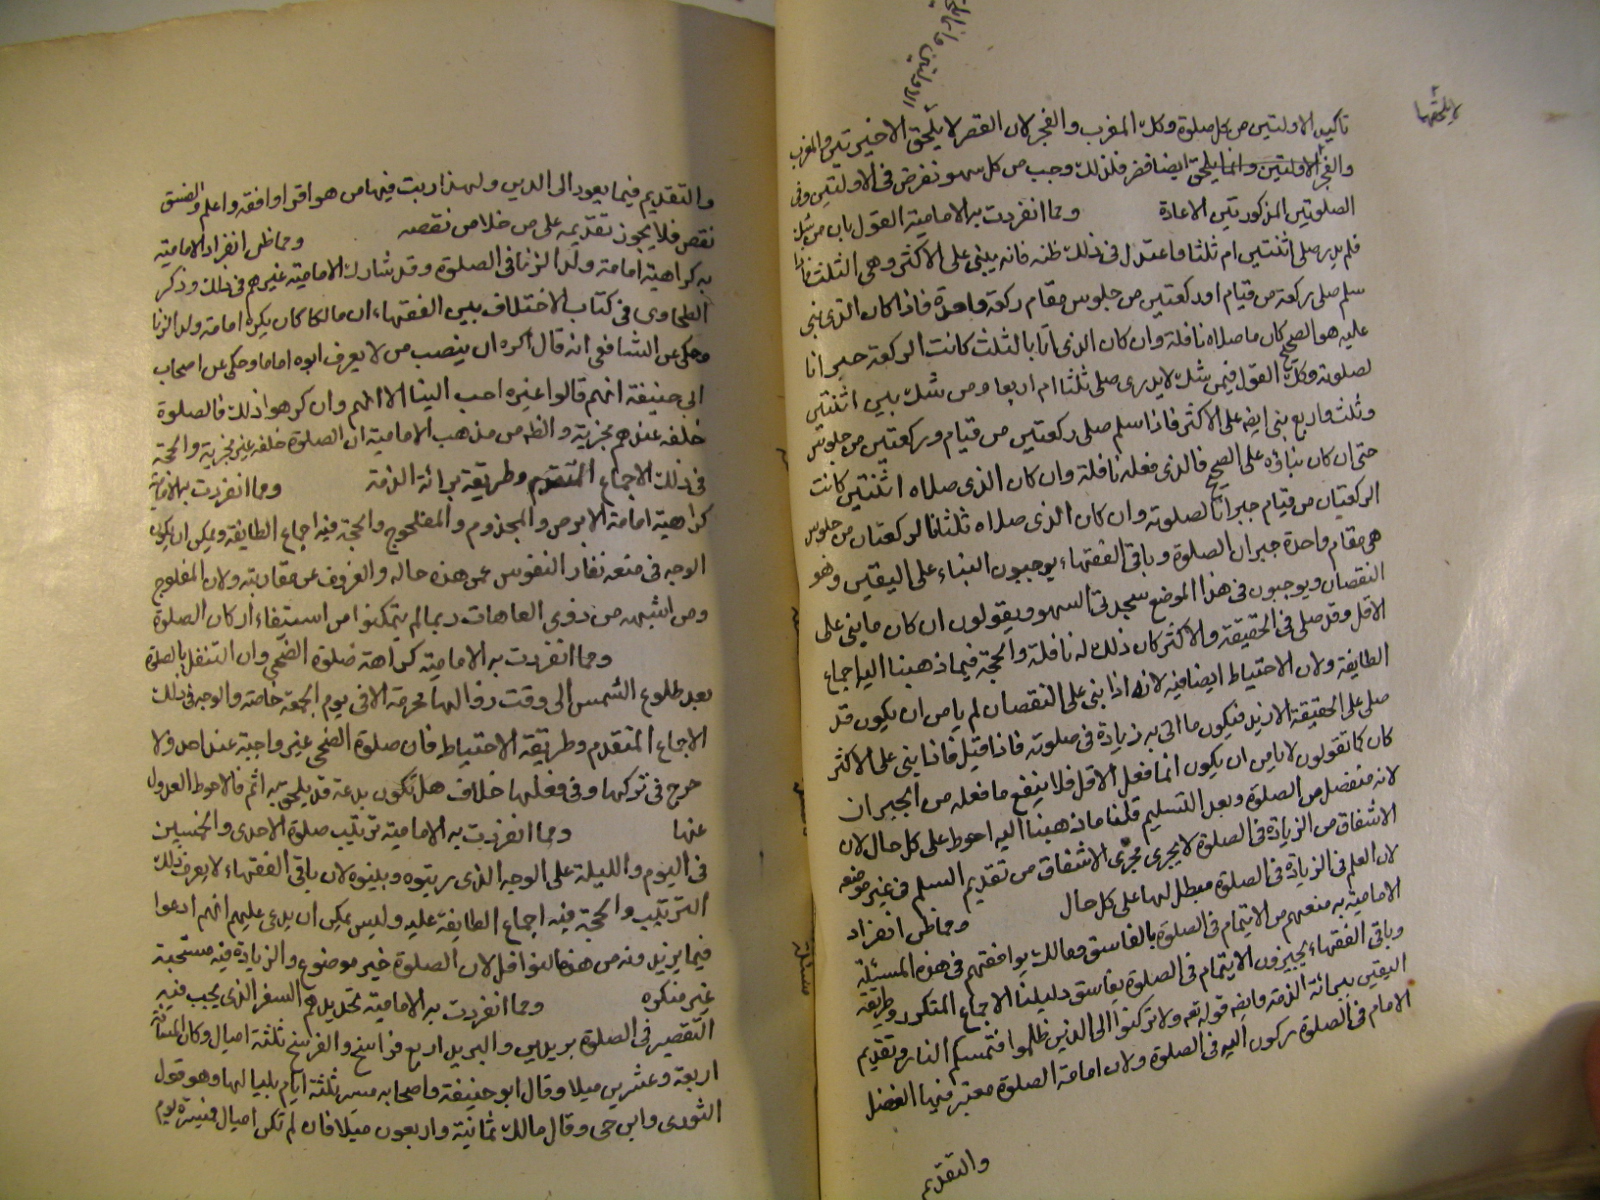 تاكيد الاولتين من كل صلوة وكل المغرب والفجر لان القصر لا يلحق الاخيرتين والمغرب
والفجر الاولتين وانما يلحق ايضا فلذلك وجب من كل سهو تفرض في الاولتين وفى
الصلوتين المذكورتين الاعادة ومما انفردت به الامامية القول بان من شك
فلم يدر صلى اثنتين ام ثلثا فاعتدل في ذلك ظنه فانه يبنى على الاكثر وهى الثلث فاذا
سلم صلى ركعة من قيام او ركعتين من جلوس مقام ركعة واحدة فاذا كان الذى بنى
عليه هو الصحيح كان ما صلاه نافلة وان كان الذى اتا بالثلث كانت الركعة جبرانا
لصلوته وكل القول فيمن شك لا يدرى صلى ثلثا ام اربعا ومن شك بين اثنتين
وثلث واربع بنى ايضا على الاكثر فاذا سلم صلى ركعتين من قيام وركعتين من جلوس
حتى ان كان بناؤه على الصحيح فالذى فعله نافلة وان كان الذى صلاه اثنتين كانت
الركعتان من قيام جبرانا لصلوته وان كان الذى صلاه ثلثا فالركعتان من جلوس
هى مقام واحدة جبران الصلوة وباقى الفقهاء يوجبون البناء على اليقين وهو
النقصان ويوجبون في هذا الموضع سجدتى السهو ويقولون ان كان ما بنى على
الاقل وقد صلى في الحقيقة الاكثر كان ذلك له نافلة والحجة فيما ذهبنا اليه اجماع
الطايفة ولان الاحتياط ايضا فيه لانه اذا بنى على النقصان لم يامن ان يكون قد
صلى على الحقيقة الازيد فيكون ما اتى به زيادة في صلوته فاذا قيل فاذا بنى على الاكثر
كان كما تقولون لا يامن ان يكون انما فعل الاقل فلا ينفع ما فعله من الجبران
لانه منفصل من الصلوة وبعد التسليم قلنا ما ذهبنا اليه احوط على كل حال لان
الاشفاق من الزيادة في الصلوة لا يجرى مجرى الاشفاق من تقديم السلم في غير موضعه
لان العلم في الزيادة في الصلوة مبطل لها على كل حال ومما ظن انفراد
الامامية به منعهم من الايتمام في الصلوة بالفاسق ومالك يوافقهم في هذه المسئلة
وباقى الفقهاء يجيزون الايتمام في الصلوة بفاسق دليلنا الاجماع المتكرر وطريقة
اليقين ببرائة الذمة وايضه قوله تعه ولا تركنوا الى الذين ظلموا فتمسكم النار وتقديم
الامام في الصلوة ركون اليه في الصلوة ولان امامة الصلوة معتبر فيها الفضل
والتقديم
والتقديم فيما يعود الى الدين ولهذا رتبت فيها من هو اقرا وافقه واعلم والفسق
نقص فلا يجوز تقديمه على من خلا من نقصه ومما ظن انفراد الامامية
به كراهية امامة ولد الزنا في الصلوة وقد شارك الامامية غيرهم في ذلك وذكر
الطحاوى في كتاب الاختلاف بين الفقهاء ان مالكا كان يكره امامة ولد الزنا
وحكى عن الشافعى انه قال اكره ان ينصب من لا يعرف ابوه اماما وحكى عن اصحاب
ابى حنيفة انهم قالوا غيره احب الينا الا انهم وان كرهوا ذلك فالصلوة
خلفه عندهم مجزية والظه من مذهب الامامية ان الصلوة خلفه غير مجزية والحجة
في ذلك الاجماع المتقدم وطريقة برائة الذمة ومما انفردت به الامامية
كراهية امامة الابرص والمجذوم والمفلوج والحجة فيه اجماع الطايفة ويمكن ان يكون
الوجه في منعه نفار النفوس عمن هذه حاله والعزوف عن مقاربته ولان المفلوج
ومن اشبهه من ذوى العاهات ربما لم يتمكنوا من استيفاء اركان الصلوة
ومما انفردت به الامامية كراهة صلوة الضحى وان التنفل بالصلوة
بعد طلوع الشمس الى وقت زوالها محرمة الا في يوم الجمعة خاصة والوجه في ذلك
الاجماع المتقدم وطريقة الاحتياط فان صلوة الضحى غير واجبة عند احد ولا
حرج في تركها وفى فعلها خلاف هل تكون بدعة قد يلحق به اثم فالاحوط العدول
عنها ومما انفردت به الامامية ترتيب صلوة الاحدى والخمسين
في اليوم والليلة على الوجه الذى رتبوه وبينوه لان باقى الفقهاء لا يعرف ذلك
الترتيب والحجة فيه اجماع الطايفة عليه وليس يمكن ان يدعى عليهم انهم ادعوا
فيما يزيد ونه من هذه النوافل لان الصلوة خير موضوع والزيادة فيه مستحبة
غير منكره ومما انفردت به الامامية تحديدهم السفر الذى يجب فيه
التقصير في الصلوة بريدين والبريد اربع فراسخ والفرسخ ثلثة اميال وكان المسافة
اربعة وعشرين ميلا وقال ابو حنيفة واصحابه مسير ثلثة ايام بلياليها وهو قول
الثورى وابن حى وقال مالك ثمانية واربعون ميلا فان لم تكن اميال فمسيرة يوم